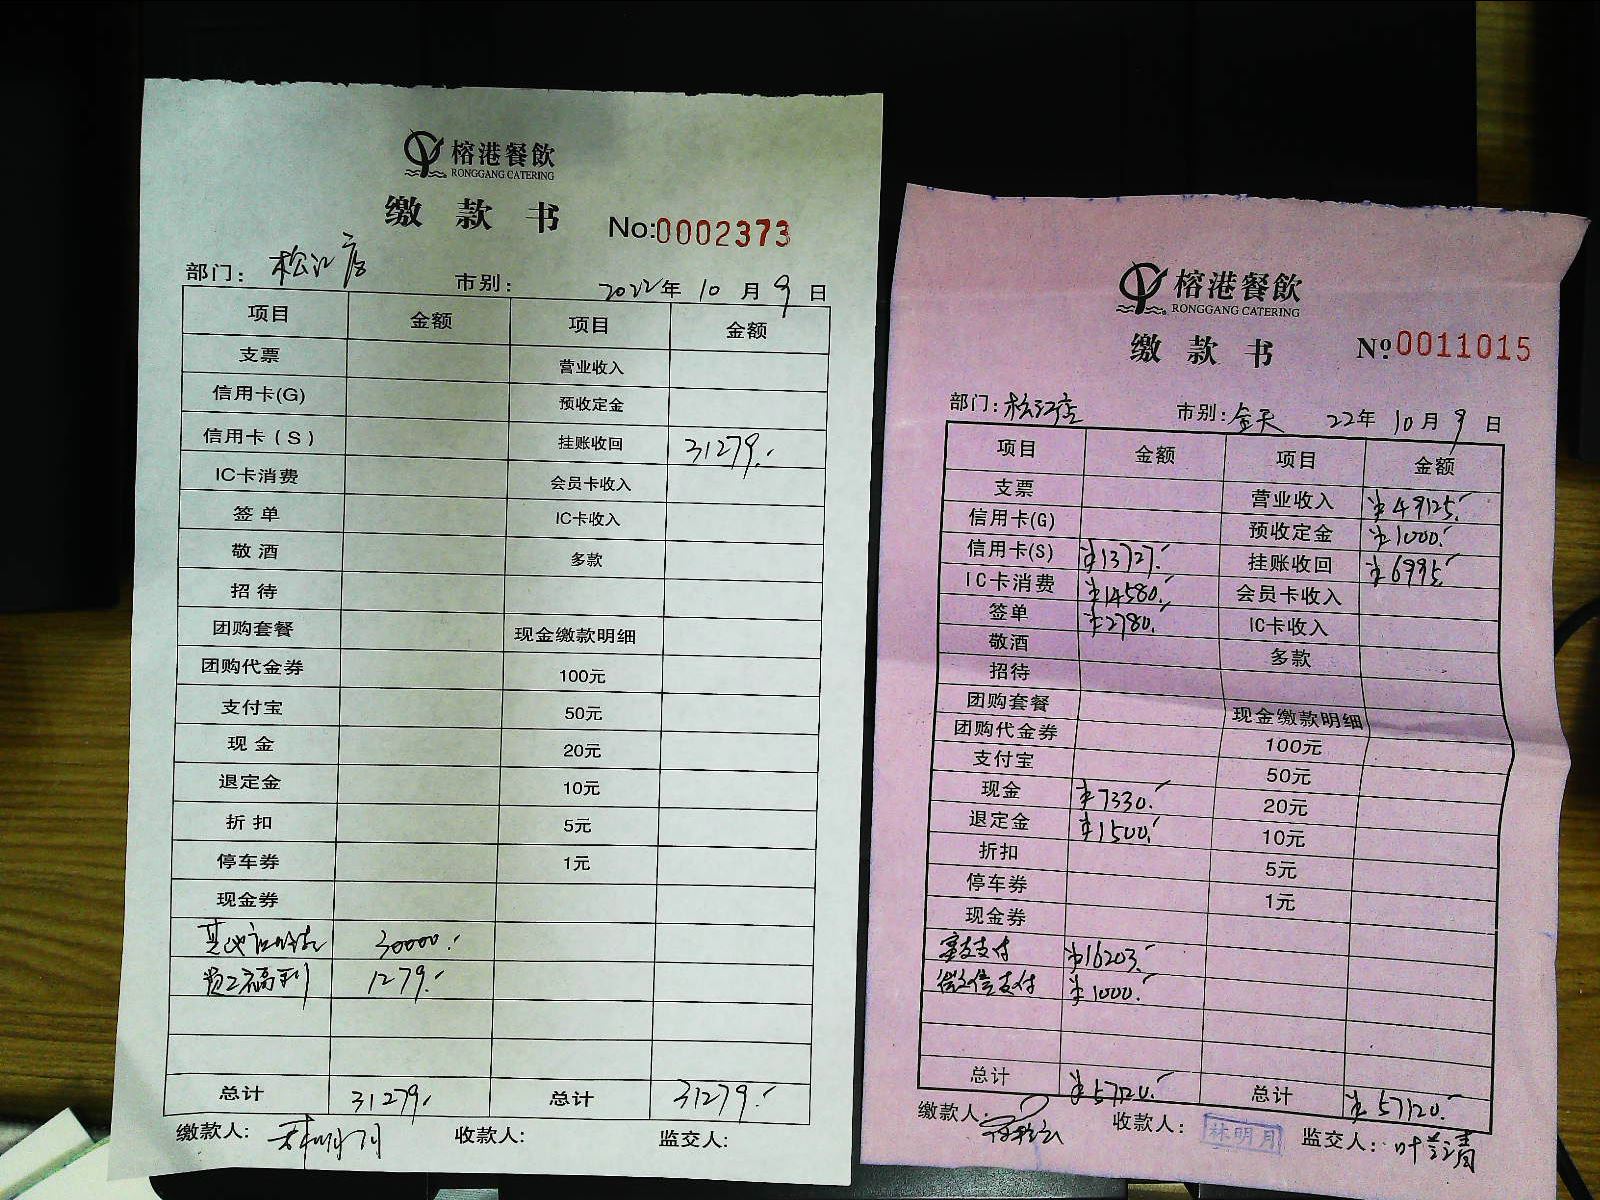 榕港餐飲
RONGGANG CATERING
缴款书 No:0002373
部门: 松江店 市别: 2022年 10月 9日
项目 金额 项目 金额
支票 营业收入
信用卡(G) 预收定金
信用卡(S) 挂账收回 31279.-
IC卡消费 会员卡收入
签单 IC卡收入
敬酒 多款
招待
团购套餐 现金缴款明细
团购代金券 100元
支付宝 50元
现金 20元
退定金 10元
折扣 5元
停车券 1元
现金券
30000.-
员工福利 1279.-
总计 31279.- 总计 31279.-
缴款人: 收款人: 监交人:
榕港餐飲
RONGGANG CATERING
缴款书 №0011015
部门: 松江店 市别: 全天 22年 10月 9日
项目 金额 项目 金额
支票 营业收入 ¥49125.-
信用卡(G) 预收定金 ¥1000.-
信用卡(S) ¥13727.- 挂账收回 ¥6995.-
IC卡消费 ¥14580.- 会员卡收入
签单 ¥2780.- IC卡收入
敬酒 多款
招待
团购套餐 现金缴款明细
团购代金券 100元
支付宝 50元
现金 ¥7330.- 20元
退定金 ¥1500.- 10元
折扣 5元
停车券 1元
现金券
支付 ¥16203.-
微信支付 ¥1000.-
总计 ¥57120.- 总计 ¥57120.-
缴款人: 收款人: 林明月 监交人: 叶兰清